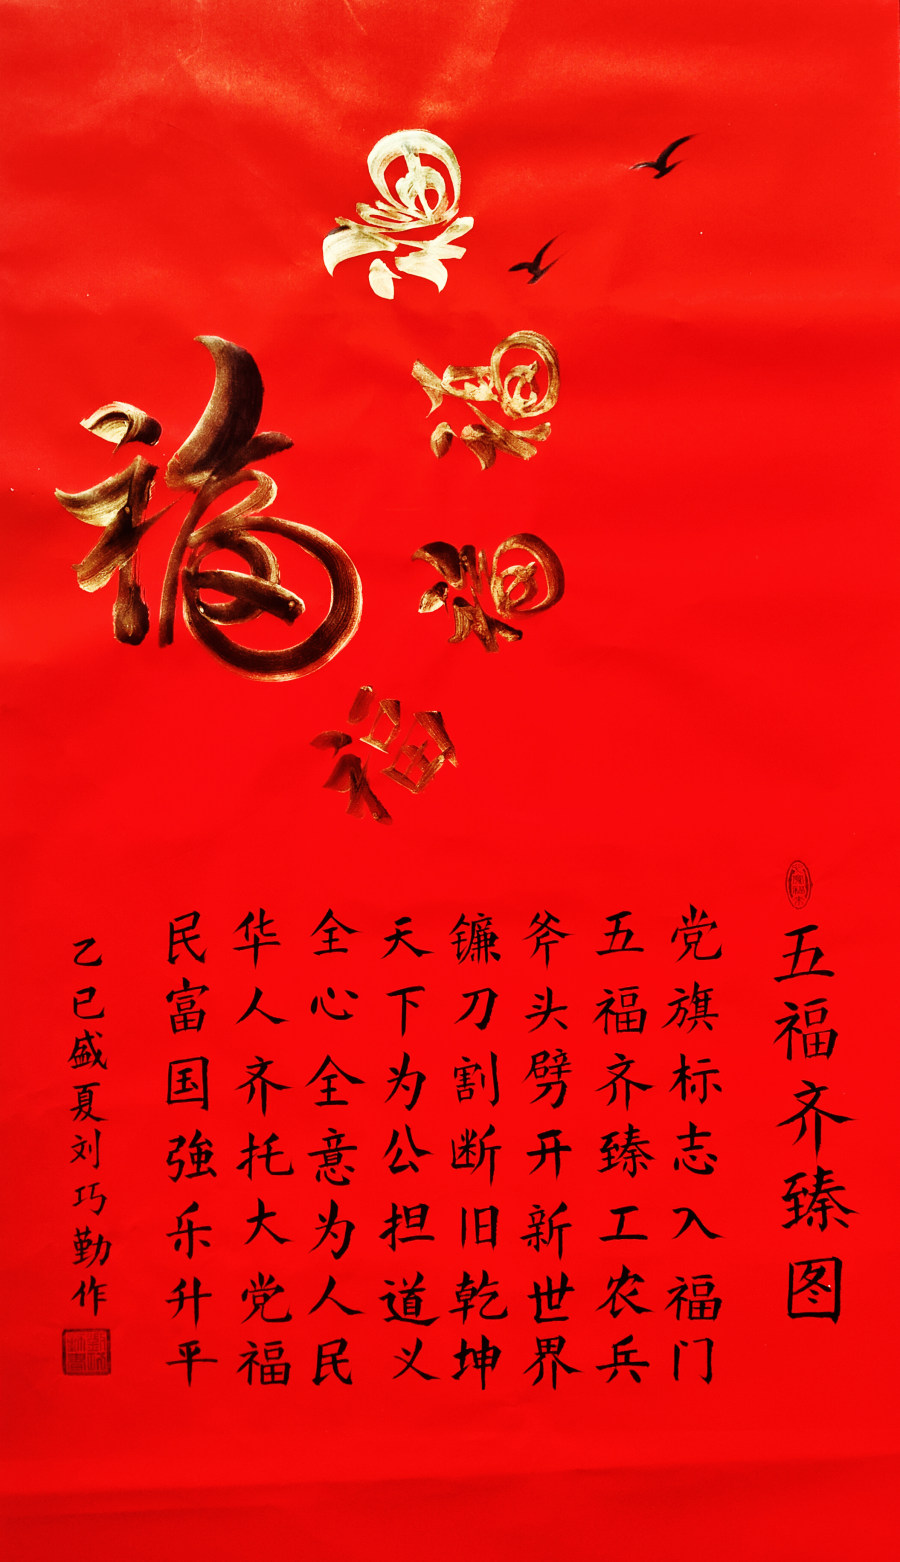 福
福
福
福
福
五福齐臻图
党旗标志入福门
五福齐臻工农兵
斧头劈开新世界
镰刀割断旧乾坤
天下为公担道义
全心全意为人民
华人齐托大党福
民富国強乐升平
乙巳盛夏刘巧勤作